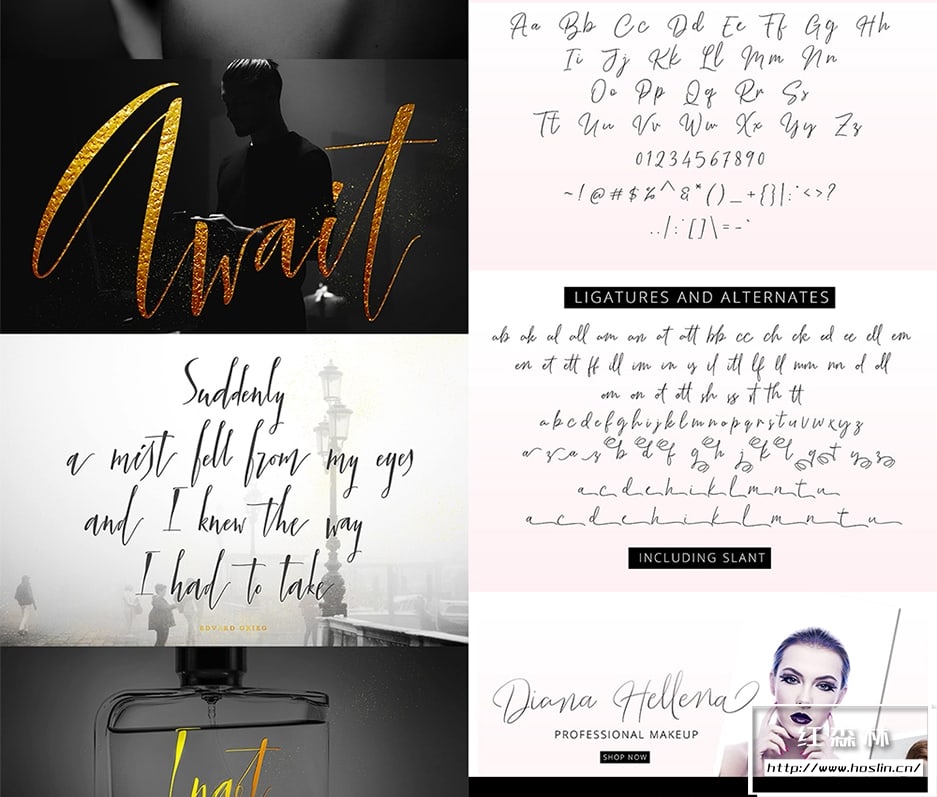 Await
Suddenly
a mist fell from my eyes
and I knew the way
I had to take
EDVARD GRIEG
Await
Aa Bb Cc Dd Ee Ff Gg Hh
Ii Jj Kk Ll Mm Nn
Oo Pp Qq Rr Ss
Tt Uu Vv Ww Xx Yy Zz
01234567890
~!@#$%^&*()_+{}|:"<>?
LIGATURES AND ALTERNATES
ab ak al all am an at att bb cc ch ck ed ee ell em
en et ett ff ill im in is il itl lf ll mm nn ol oll
om on ot ott sh ss st th tt
a b c d e f g h i j k l m n o p q r s t u v w x y z
a c d e h i k l m n t u
a c d e h i k l m n t u
INCLUDING SLANT
Diana Hellena
PROFESSIONAL MAKEUP
SHOP NOW
红森林
http://www.hoslin.cn/